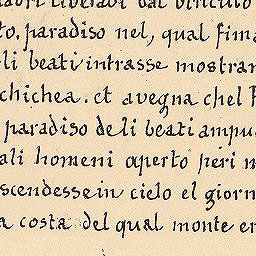 liberati dal vinculo
to. paradiso nel, qual fima
li beati intrasse mostrar
chichea. et avegna chel
paradiso de li beati ampu
ali homeni aperto peri m
scendesse in cielo el giorn
a costa del qual monte er